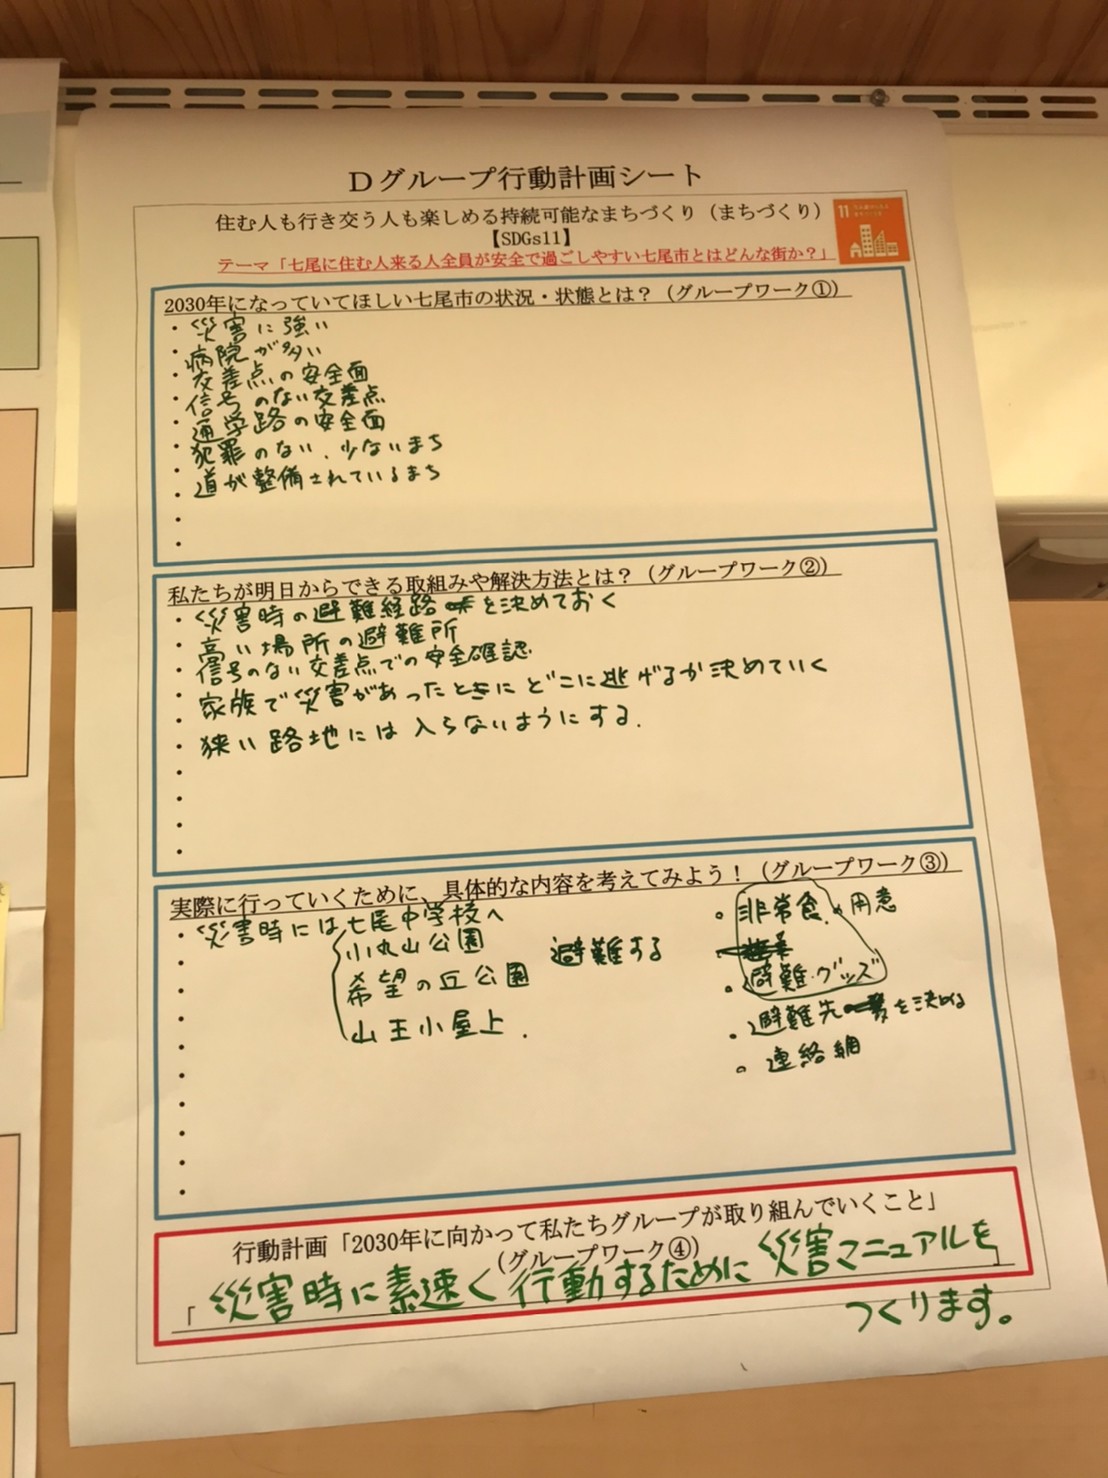 Dグループ行動計画シート
住む人も行き交う人も楽しめる持続可能なまちづくり（まちづくり）
【SDGs11】
11
テーマ「七尾に住む人来る人全員が安全で過ごしやすい七尾市とはどんな街か？」
2030年になっていてほしい七尾市の状況・状態とは？（グループワーク①）
・災害に強い
・病院が多い
・交差点の安全面
・信号のない交差点
・通学路の安全面
・犯罪のない、少ないまち
・道が整備されているまち
私たちが明日からできる取組みや解決方法とは？（グループワーク②）
・災害時の避難経路を決めておく
・高い場所の避難所
・信号のない交差点での安全確認
・家族で災害があったときにどこに逃げるか決めていく
・狭い路地には入らないようにする.
実際に行っていくために、具体的な内容を考えてみよう！（グループワーク③）
・災害時には七尾中学校へ
小丸山公園
希望の丘公園
山王小屋上.
避難する
。非常食の用意
。避難グッズ
・避難先を決める
。連絡網
行動計画「2030年に向かって私たちグループが取り組んでいくこと」
（グループワーク④）
「災害時に素速く行動するために災害マニュアルを」
つくります。